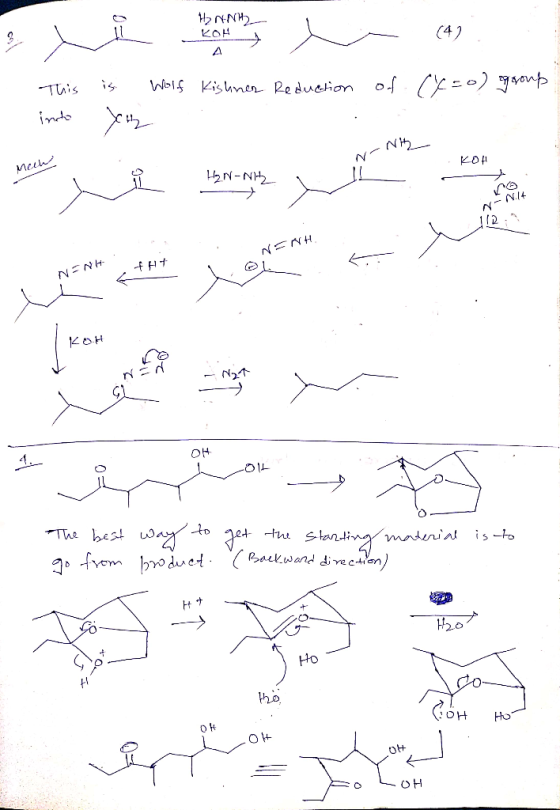 3.
O
H2N-NH2
KOH
Δ
(4)
This is Wolf Kishner Reduction of (C=O) group
into >CH2
Mech
O
H2N-NH2
N-NH2
KOH
N-NH
N=NH
+H+
N=NH
KOH
N=N
-N2↑
4.
O
OH
OH
O
O
The best way to get the starting material is to
go from product. (Backward direction)
O
O
H
H+
O
HO
H2O
H2O
O
OH
HO
O
OH
OH
≡
O
OH
OH